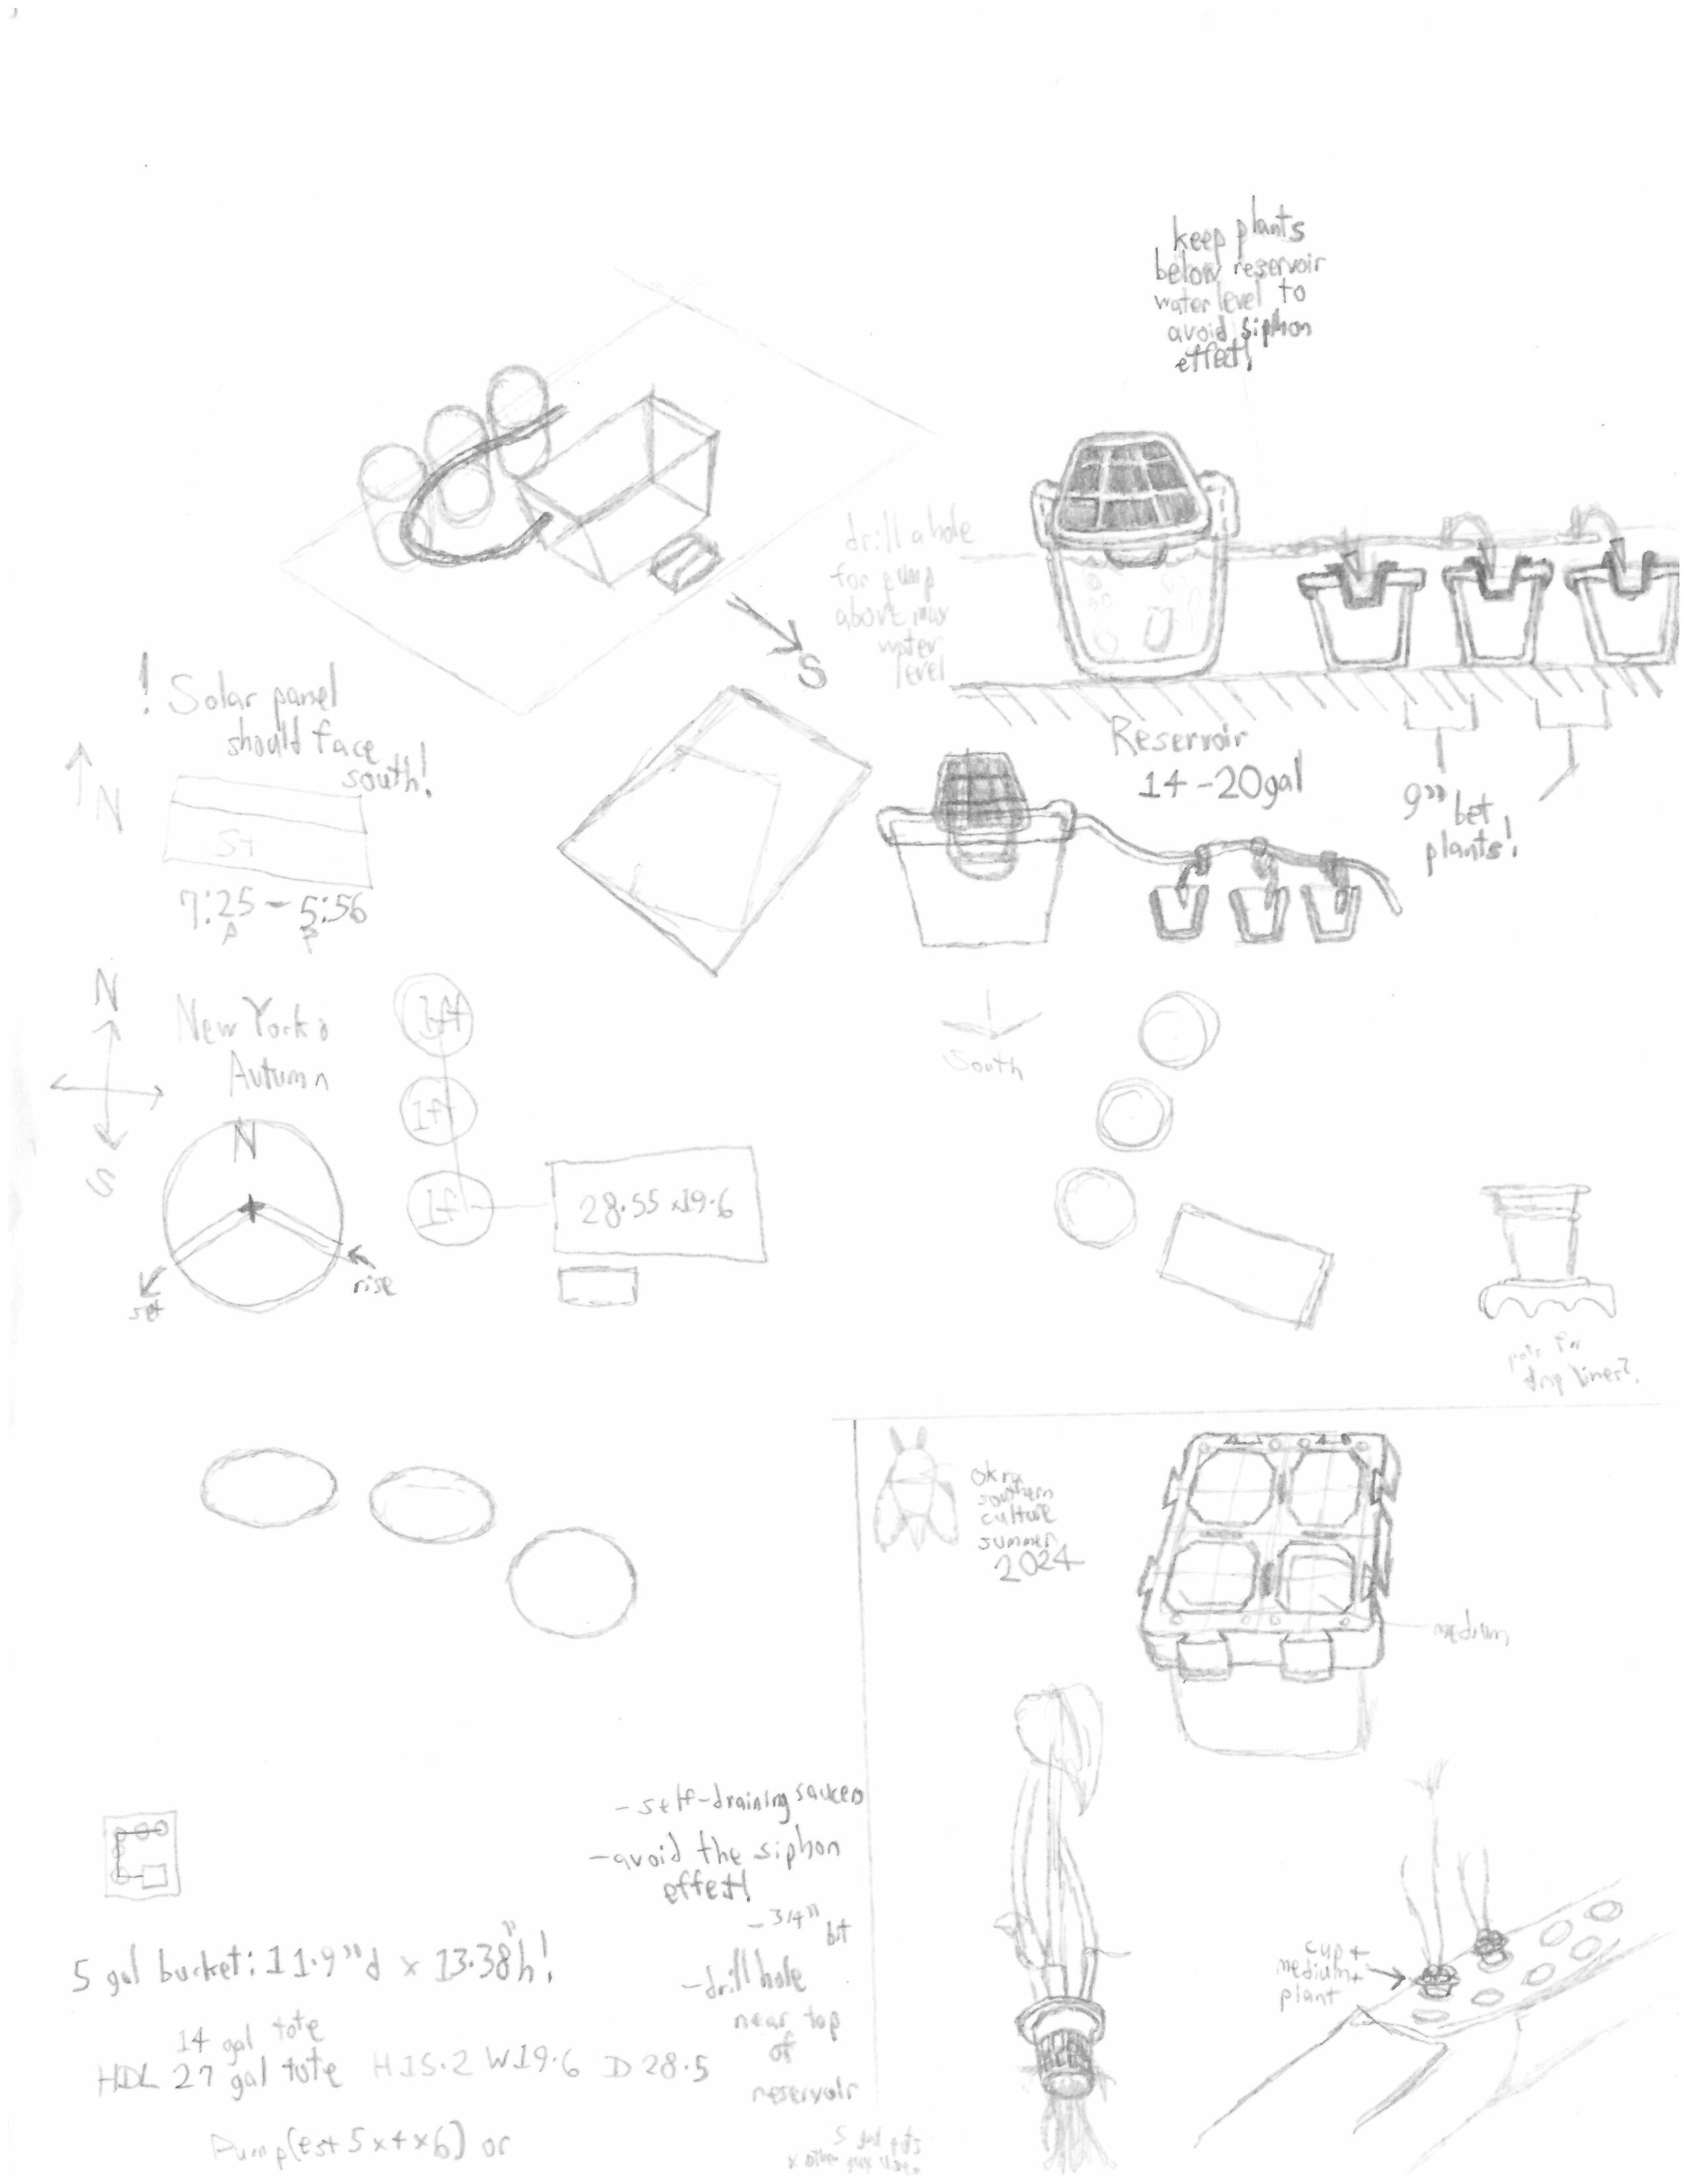 keep plants
below reservoir
water level to
avoid siphon
effect!
drill a hole
for pump
above max
water
level
S
! Solar panel
should face
south!
N
St
7:25 - 5:56
A P
Reservoir
14-20gal
9" bet
plants!
N
S
New York
Autumn
1ft
1ft
1f
28.55 x19.6
N
set
rise
South
pots for
drip liner?
Okra
southern
culture
summer
2024
medium
- self-draining
- avoid the siphon
effect!
- 3/4" bit
- drill hole
near top
of
reservoir
5 gal bucket: 11.9"d x 13.38"h!
14 gal tote
HDL 27 gal tote H 15.2 W19.6 D 28.5
Pump (est 5x4x6) or
5 gal
cup +
medium+
plant